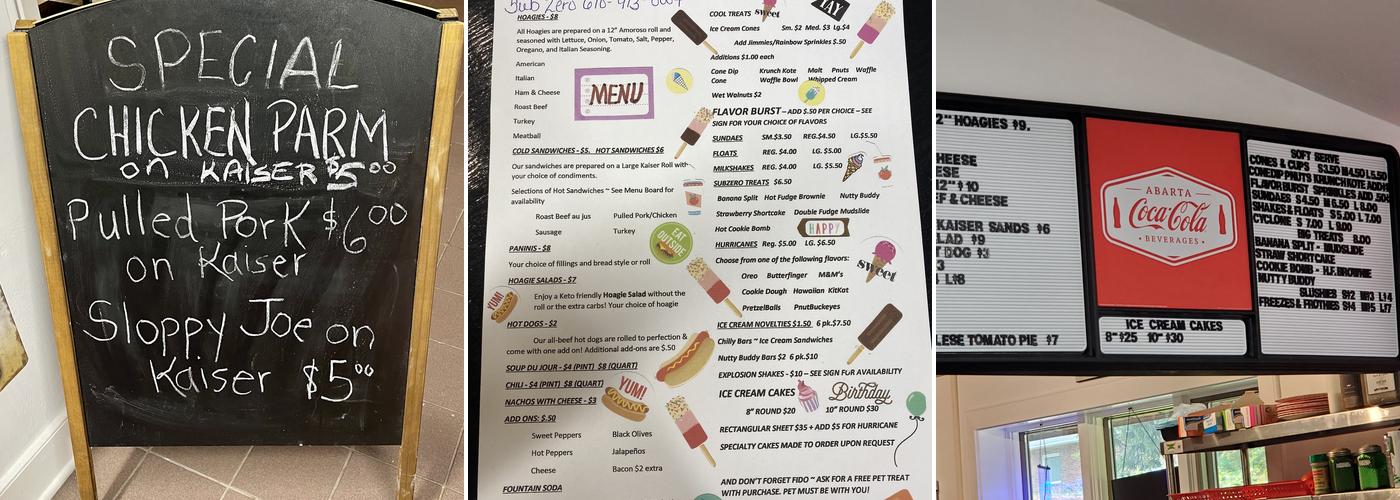 SPECIAL
CHICKEN PARM
on KAISER $5.00
Pulled Pork $6.00
on Kaiser
Sloppy Joe on
Kaiser $5.00
Sub Zero 610-
HOAGIES - $8
All Hoagies are prepared on a 12" Amoroso roll and
seasoned with Lettuce, Onion, Tomato, Salt, Pepper,
Oregano, and Italian Seasoning.
American
Italian
Ham & Cheese
Roast Beef
Turkey
Meatball
MENU
COLD SANDWICHES - $5. HOT SANDWICHES $6
Our sandwiches are prepared on a Large Kaiser Roll with
your choice of condiments.
Selections of Hot Sandwiches ~ See Menu Board for
availability
Roast Beef au jus Pulled Pork/Chicken
Sausage Turkey
EAT OUTSIDE
PANINIS - $8
Your choice of fillings and bread style or roll
HOAGIE SALADS - $7
YUM!
Enjoy a Keto friendly Hoagie Salad without the
roll or the extra carbs! Your choice of hoagie
HOT DOGS - $2
Our all-beef hot dogs are rolled to perfection &
come with one add on! Additional add-ons are $.50
SOUP DU JOUR - $4 (PINT) $8 (QUART)
CHILI - $4 (PINT) $8 (QUART)
YUM!
NACHOS WITH CHEESE - $3
ADD ONS: $.50
Sweet Peppers Black Olives
Hot Peppers Jalapeños
Cheese Bacon $2 extra
FOUNTAIN SODA
COOL TREATS sweet
Ice Cream Cones Sm. $2 Med. $3 Lg.$4
Add Jimmies/Rainbow Sprinkles $.50
Additions $1.00 each
Cone Dip Krunch Kote Malt Pnuts Waffle
Cone Waffle Bowl Whipped Cream
Wet Walnuts $2
FLAVOR BURST – ADD $.50 PER CHOICE – SEE
SIGN FOR YOUR CHOICE OF FLAVORS
SUNDAES SM.$3.50 REG.$4.50 LG.$5.50
FLOATS REG. $4.00 LG. $5.00
MILKSHAKES REG. $4.00 LG. $5.50
SUBZERO TREATS $6.50
Banana Split Hot Fudge Brownie Nutty Buddy
Strawberry Shortcake Double Fudge Mudslide
Hot Cookie Bomb HAPPY
HURRICANES Reg. $5.00 LG. $6.50
Choose from one of the following flavors:
sweet
Oreo Butterfinger M&M's
Cookie Dough Hawaiian KitKat
PretzelBalls PnutBuckeyes
ICE CREAM NOVELTIES $1.50 6 pk.$7.50
Chilly Bars ~ Ice Cream Sandwiches
Nutty Buddy Bars $2 6 pk.$10
EXPLOSION SHAKES - $10 – SEE SIGN FOR AVAILABILITY
ICE CREAM CAKES Birthday
8" ROUND $20 10" ROUND $30
RECTANGULAR SHEET $35 + ADD $5 FOR HURRICANE
SPECIALTY CAKES MADE TO ORDER UPON REQUEST
AND DON'T FORGET FIDO ~ ASK FOR A FREE PET TREAT
WITH PURCHASE. PET MUST BE WITH YOU!
2" HOAGIES $9.
HEESE
ESE
2" $10
EF & CHEESE
KAISER SANDS $6
LAD $9
T DOG $3
L $8
LESE TOMATO PIE $7
ABARTA
Coca-Cola
BEVERAGES
ICE CREAM CAKES
8" $25 10" $30
SOFT SERVE
CONES & CUPS S3.50 M4.50 L5.50
SUNDAES $4.50 M 6.50 L 8.00
SHAKES & FLOATS $ 5.00 L 7.00
CYCLONE $ 7.00 L 9.00
BIG TREATS 8.00
BANANA SPLIT - MUDSLIDE
STRAW SHORTCAKE
COOKIE BOMB - H.F. BROWNIE
NUTTY BUDDY